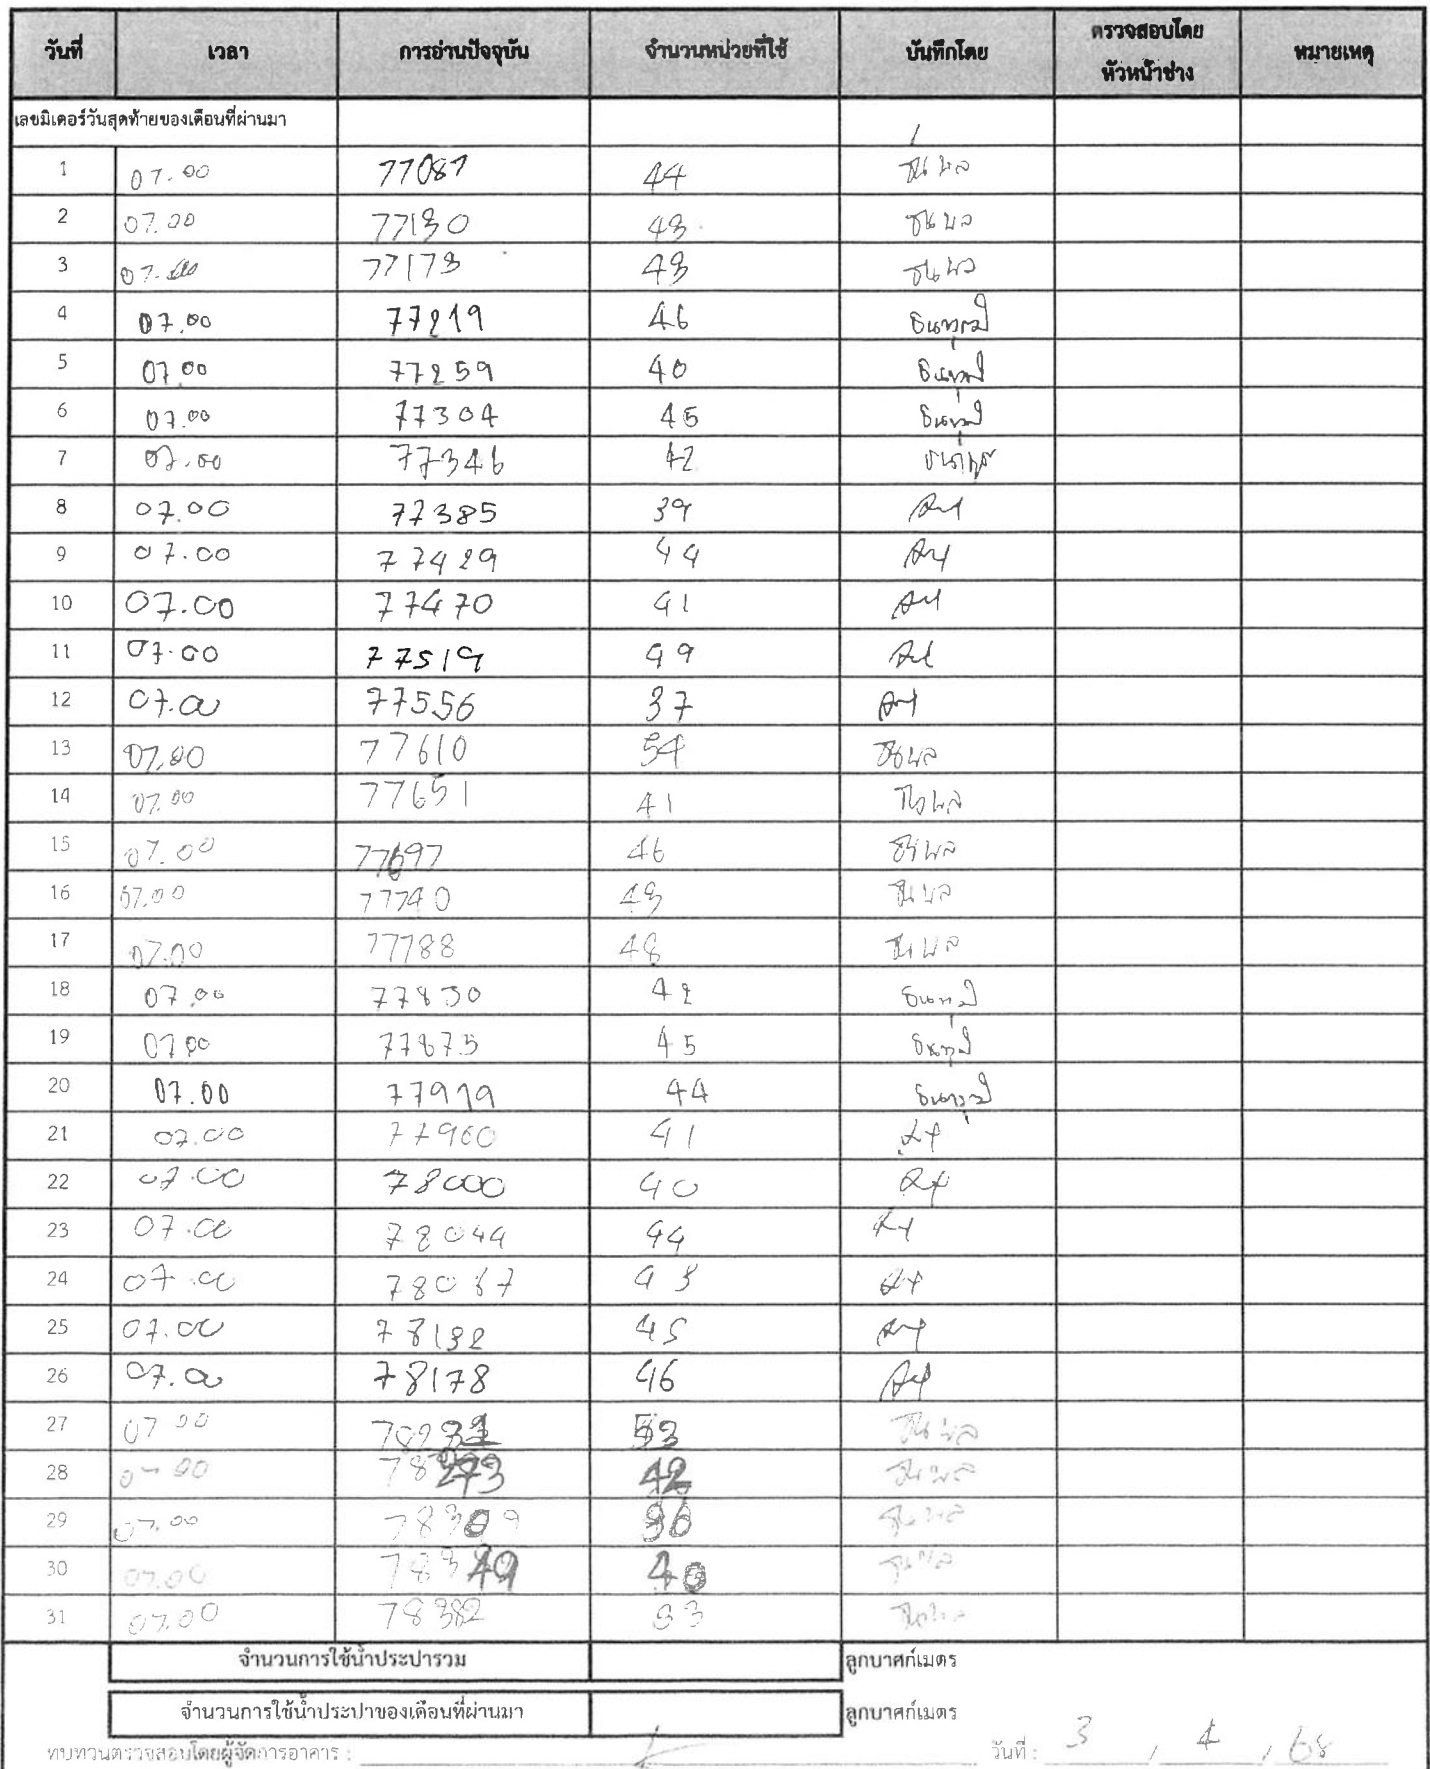 วันที่ เวลา การอ่านปัจจุบัน จำนวนหน่วยที่ใช้ บันทึกโดย ตรวจสอบโดยหัวหน้าช่าง หมายเหตุ
เลขมิเตอร์วันสุดท้ายของเดือนที่ผ่านมา
1 07.00 77087 44 ธนพล
2 07.00 77130 43 ธนพล
3 07.00 77173 43 ธนพล
4 07.00 77219 46
5 07.00 77259 40
6 07.00 77304 45
7 07.00 77346 42
8 07.00 77385 39
9 07.00 77429 44
10 07.00 77470 41
11 07.00 77519 49
12 07.00 77556 37
13 07.00 77610 54 ธนพล
14 07.00 77651 41 ธนพล
15 07.00 77697 46 ธนพล
16 07.00 77740 43 ธนพล
17 07.00 77788 48 ธนพล
18 07.00 77830 42
19 07.00 77875 45
20 07.00 77919 44
21 07.00 77960 41
22 07.00 78000 40
23 07.00 78044 44
24 07.00 78087 43
25 07.00 78132 45
26 07.00 78178 46
27 07.00 78231 53 ธนพล
28 07.00 78273 42 ธนพล
29 07.00 78309 36 ธนพล
30 07.00 78349 40 ธนพล
31 07.00 78382 33 ธนพล
จำนวนการใช้น้ำประปารวม ลูกบาศก์เมตร
จำนวนการใช้น้ำประปาของเดือนที่ผ่านมา ลูกบาศก์เมตร
ทบทวนตรวจสอบโดยผู้จัดการอาคาร : วันที่ : 3 / 4 / 68